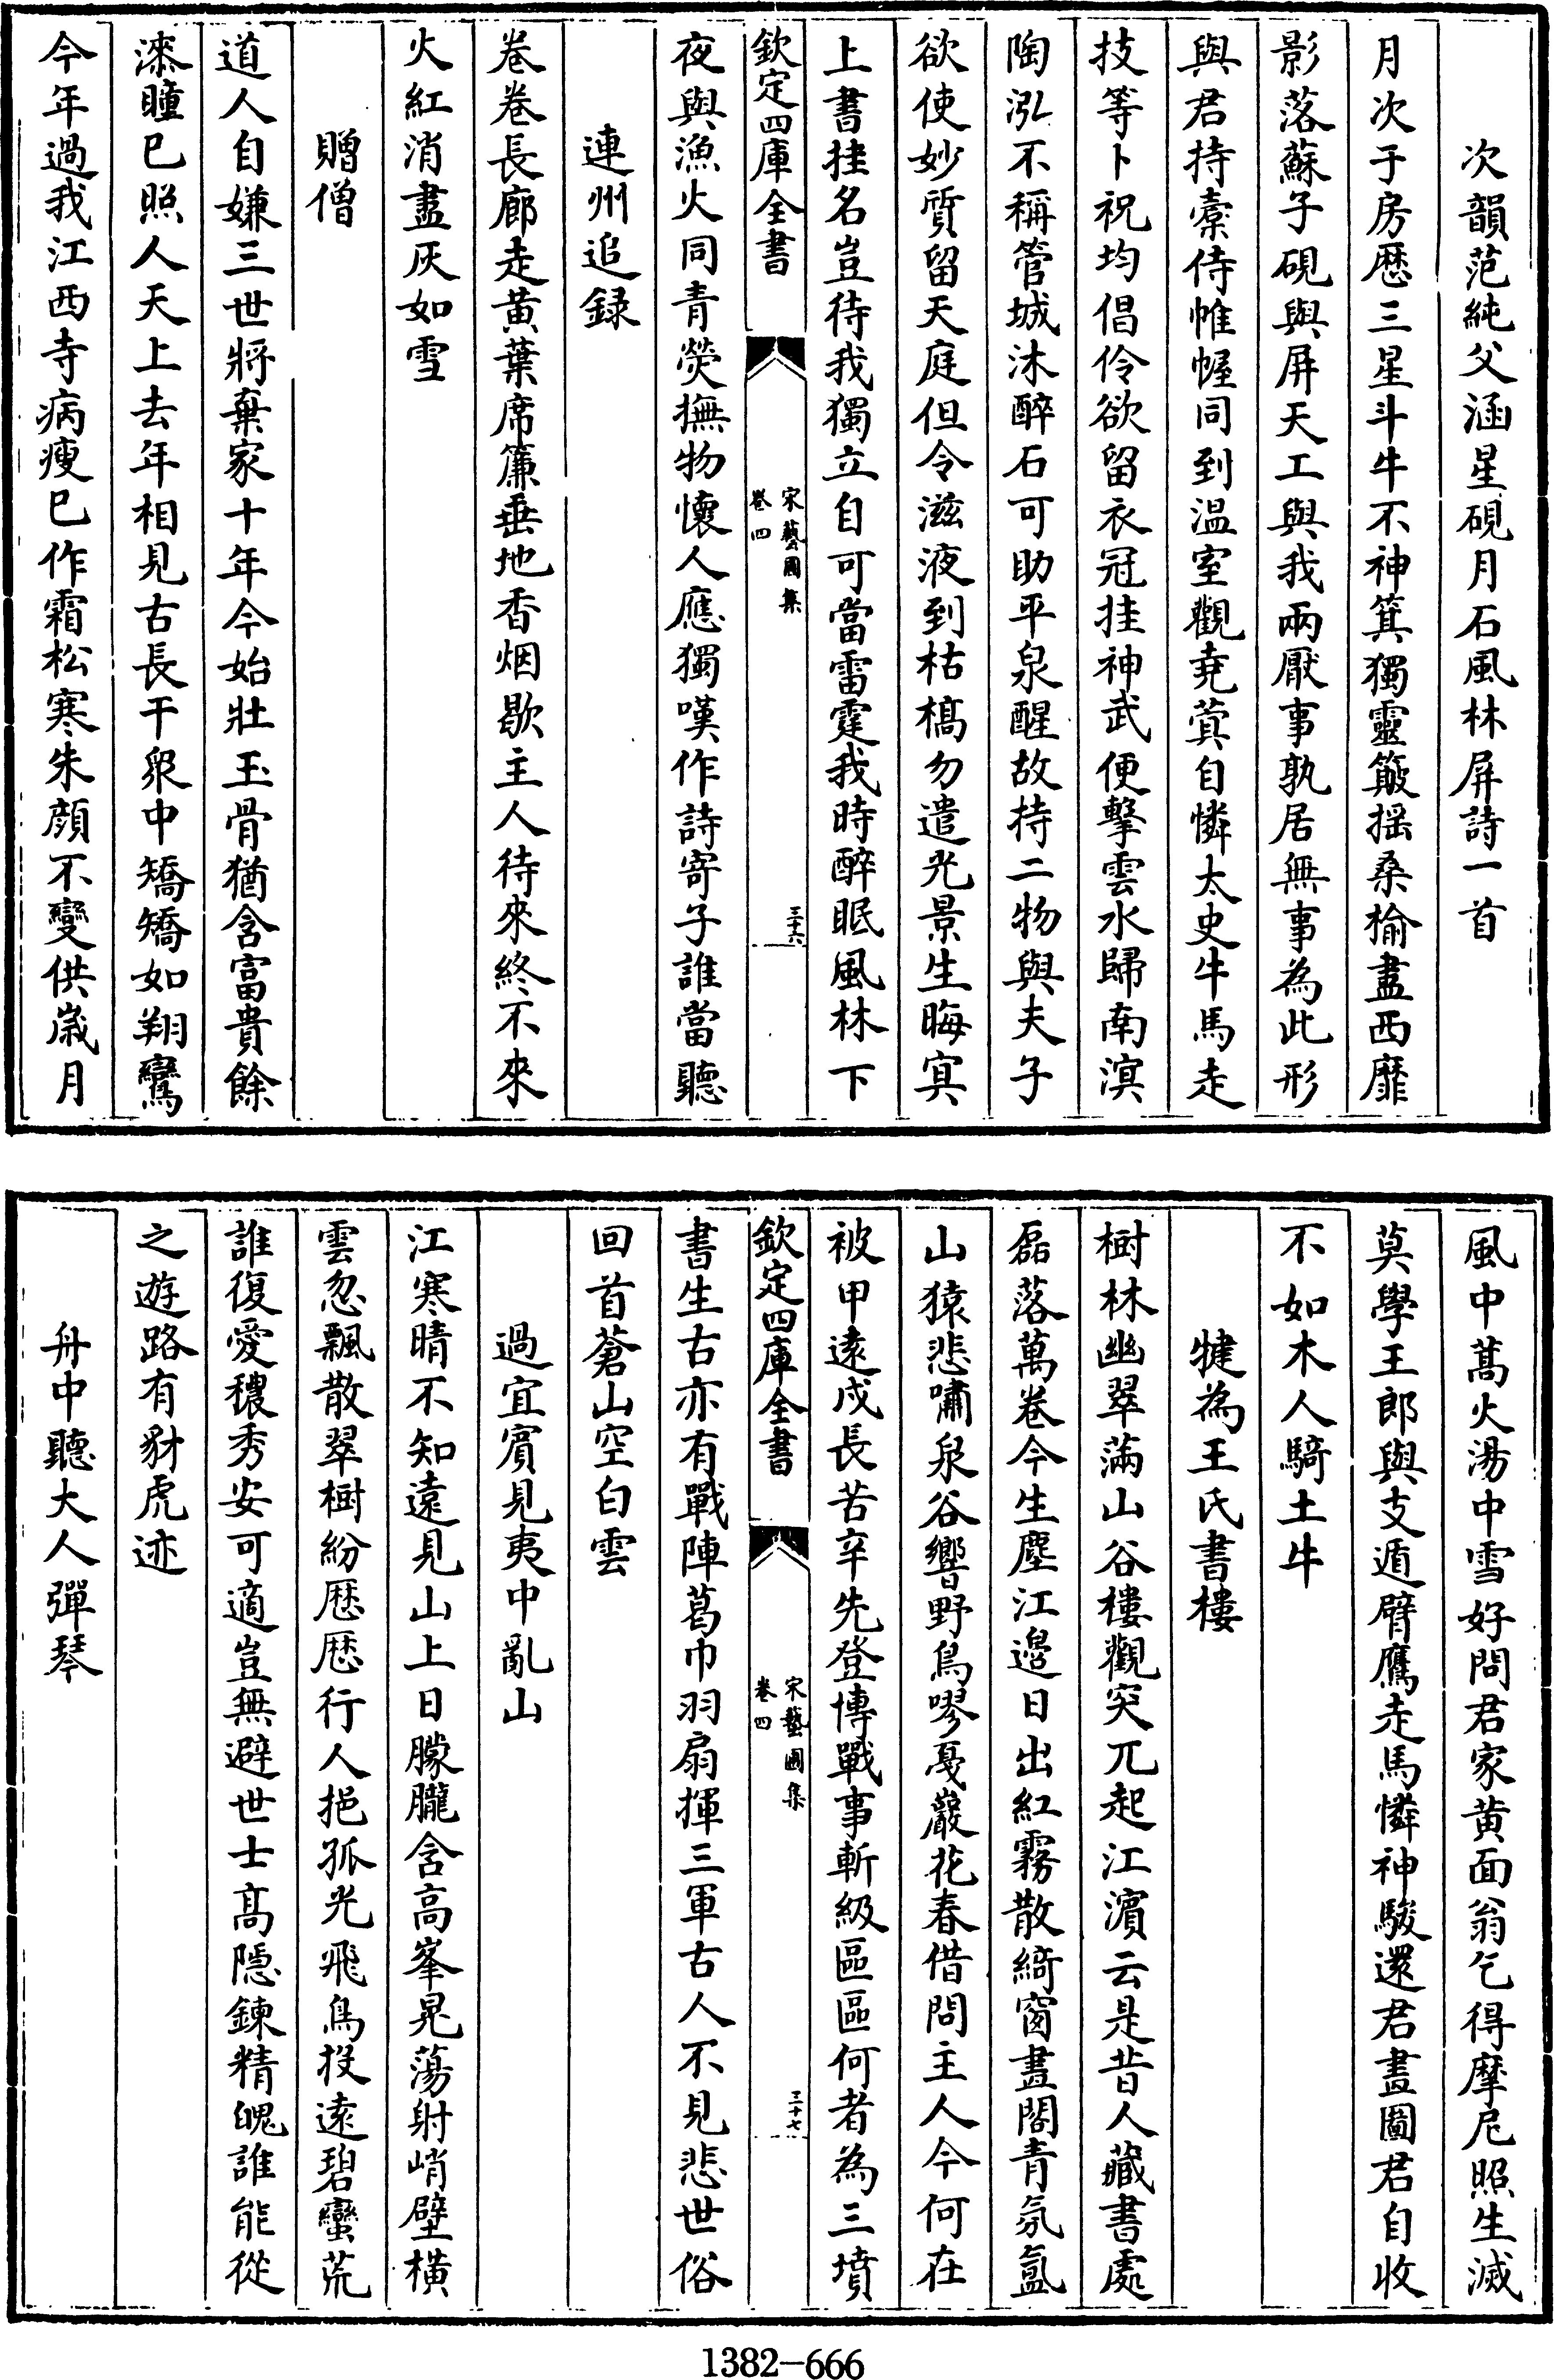 次韻范純父涵星硯月石風林屏詩一首
月次于房歴三星斗牛不神箕獨靈簸揺桑榆盡西靡
影落蘇子硯與屏天工與我兩厭事孰居無事為此形
與君持橐侍帷幄同到温室觀堯蓂自憐太史牛馬走
技等卜祝均倡伶欲留衣冠挂神武便擊雲水歸南溟
陶泓不稱管城沐醉石可助平泉醒故持二物與夫子
欲使妙質留天庭但令滋液到枯槁勿遣光景生晦㝠
上書挂名豈待我獨立自可當雷霆我時醉眠風林下
欽定四庫全書
宋藝圃集
卷四
三十六
夜與漁火同青熒撫物懐人應獨嘆作詩寄子誰當聽
連州追録
卷卷長廊走黄葉席簾垂地香烟歇主人待來終不來
火紅消盡灰如雪
贈僧
道人自嫌三世將棄家十年今始壯玉骨猶含富貴餘
漆瞳已照人天上去年相見古長干衆中矯矯如翔鸞
今年過我江西寺病瘦已作霜松寒朱顔不變供歲月
風中蒿火湯中雪好問君家黄面翁乞得摩尼照生滅
莫學王郎與支遁臂鷹走馬憐神駿還君畫圖君自收
不如木人騎土牛
犍為王氏書樓
樹林幽翠滿山谷樓觀突兀起江濵云是昔人藏書處
磊落萬卷今生塵江邉日出紅霧散綺窗畫閣青氛氲
山猿悲嘯泉谷響野鳥嘐戞巖花春借問主人今何在
被甲逺戍長苦辛先登博戰事斬級區區何者為三墳
欽定四庫全書
宋藝圃集
卷四
三十七
書生古亦有戰陣葛巾羽扇揮三軍古人不見悲世俗
回首蒼山空白雲
過宜賓見夷中亂山
江寒晴不知逺見山上日朦朧含高峯晃蕩射峭壁横
雲忽飄散翠樹紛歴歴行人挹孤光飛鳥投逺碧蠻荒
誰復愛穠秀安可適豈無避世士髙隠鍊精魄誰能從
之遊路有豺虎迹
舟中聽大人彈琴
1382-666